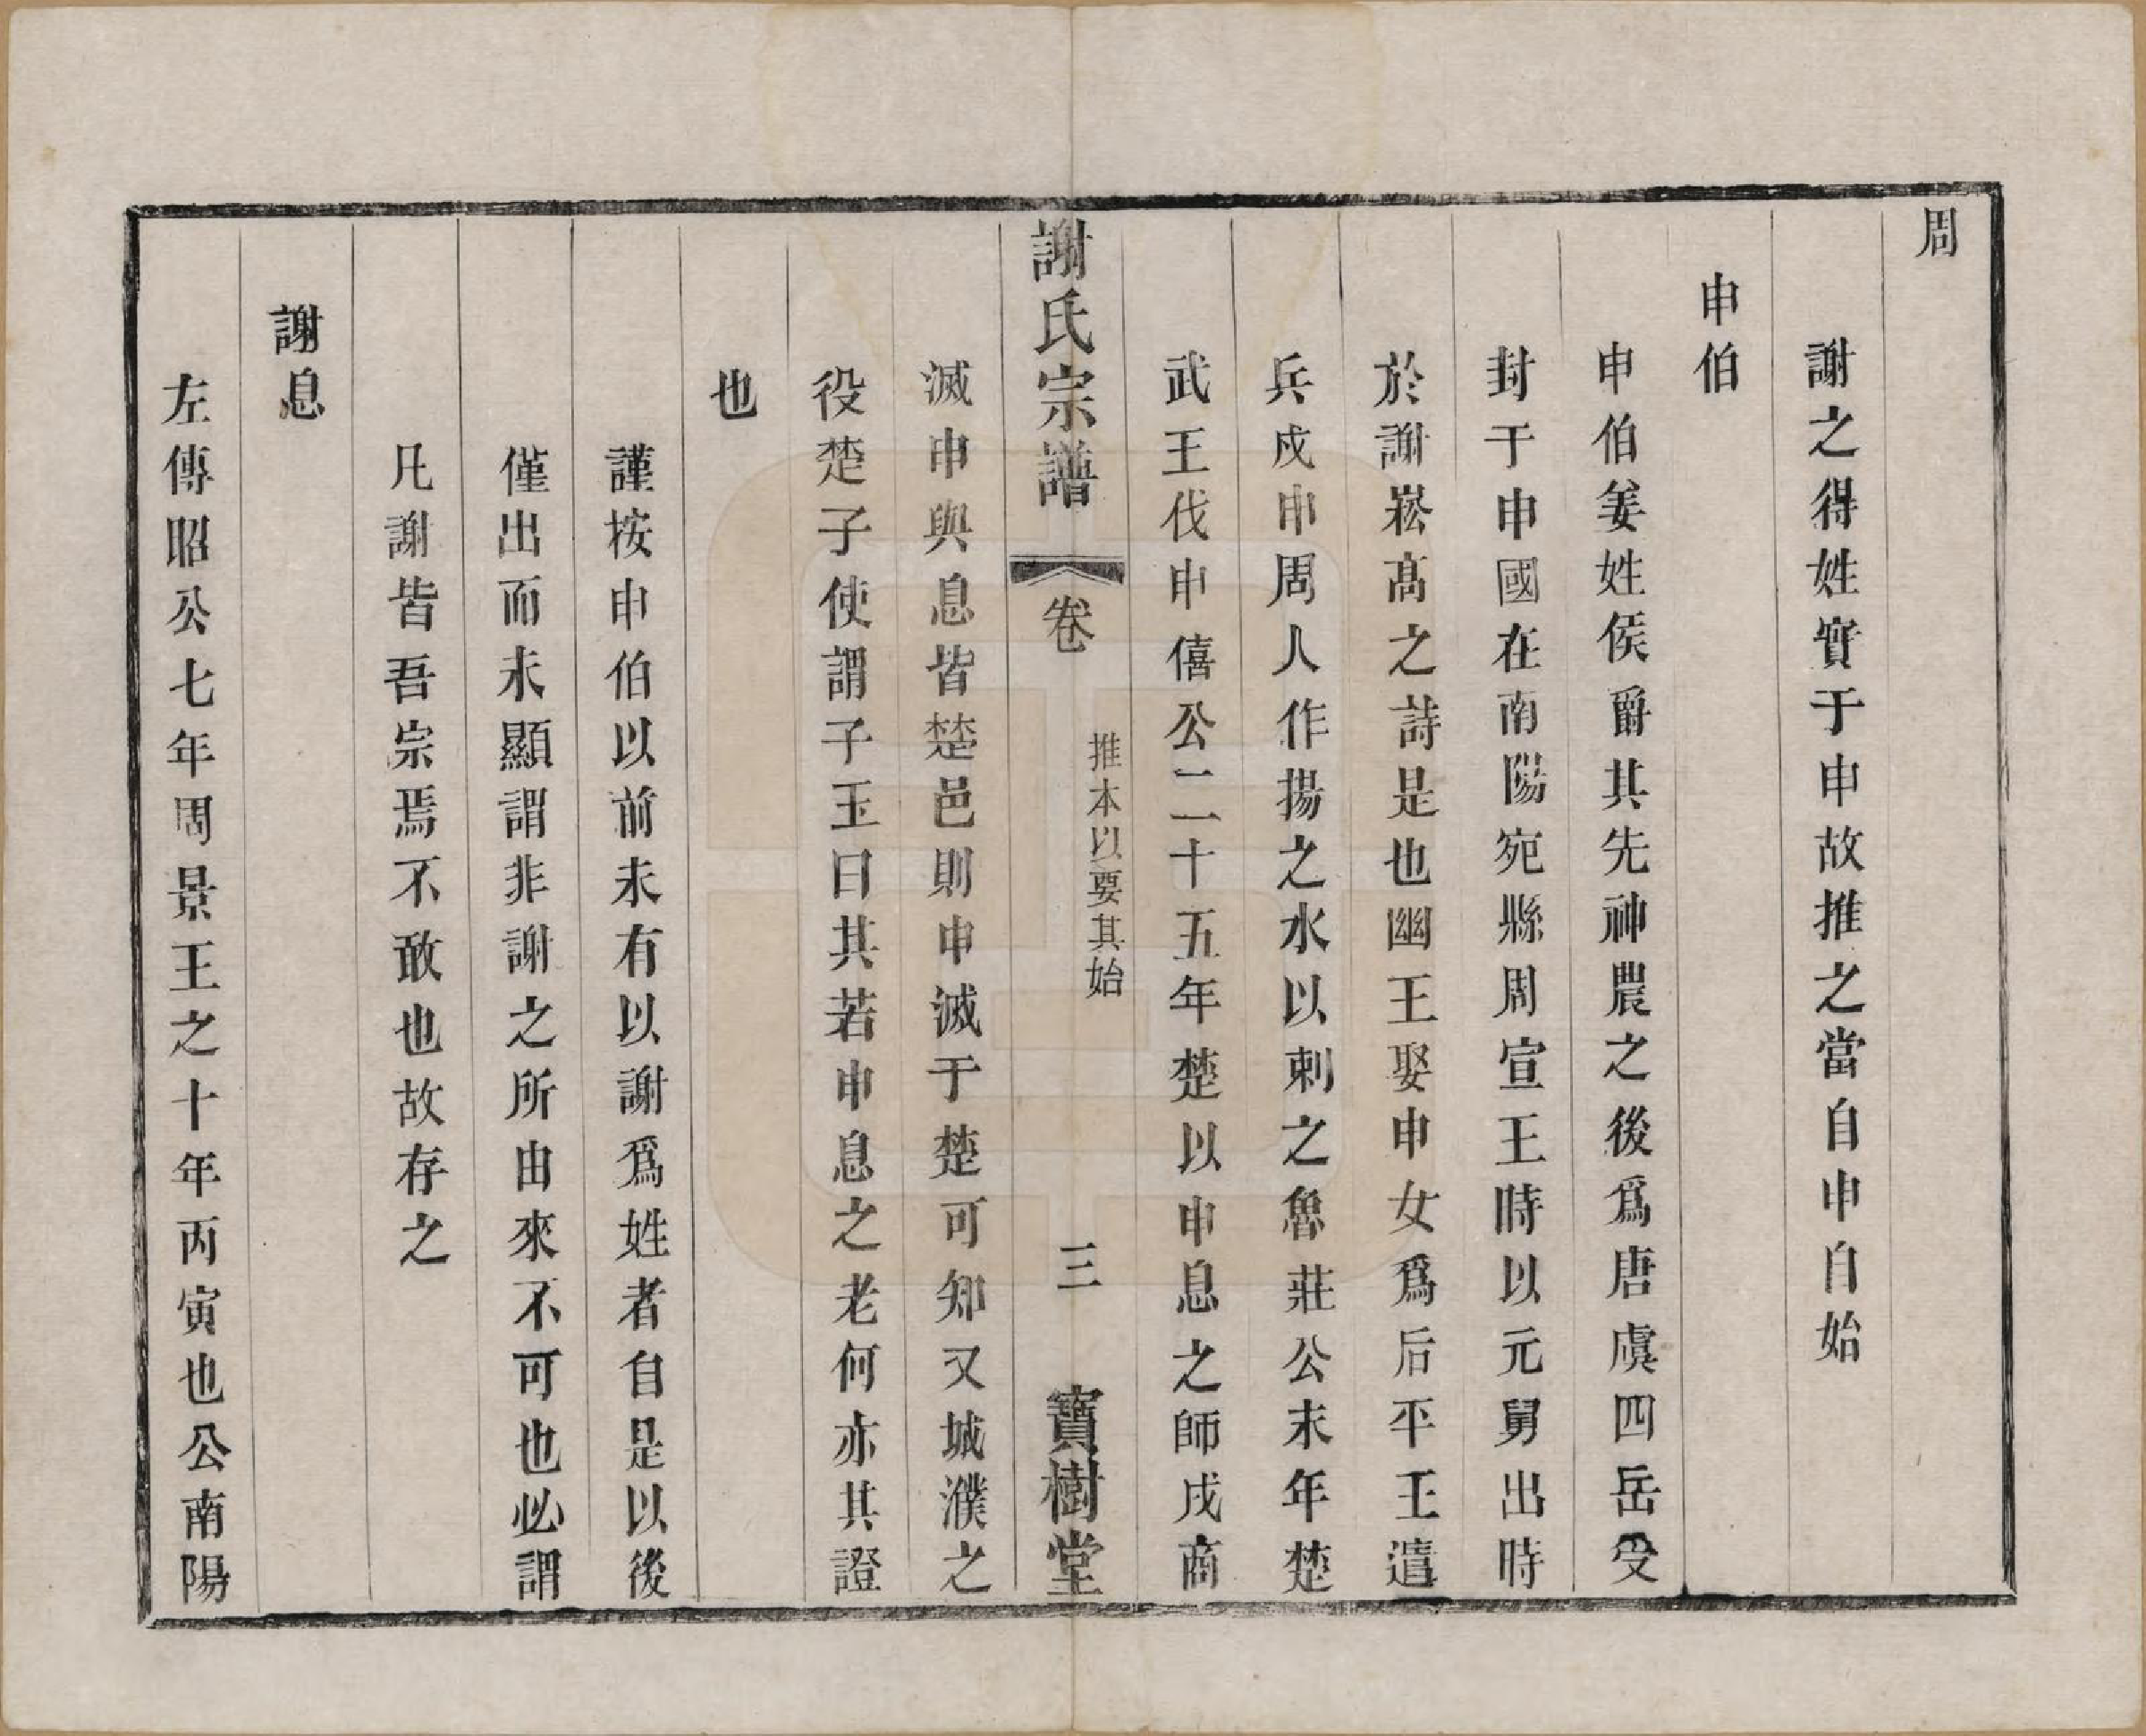 周
謝之得姓實于申故推之當自申自始
申伯
申伯姜姓侯爵其先神農之後爲唐虞四岳受
封于申國在南陽宛縣周宣王時以元舅出時
於謝崧高之詩是也幽王娶申女爲后平王遣
兵戍申周人作揚之水以刺之魯莊公末年楚
武王伐申僖公二十五年楚以申息之師戍商
謝氏宗譜
卷
推本以要其始
三
寶樹堂
滅申與息皆楚邑則申滅于楚可知又城濮之
役楚子使謂子玉曰其若申息之老何亦其證
也
謹按申伯以前未有以謝爲姓者自是以後
僅出而未顯謂非謝之所由來不可也必謂
凡謝皆吾宗焉不敢也故存之
謝息
左傳昭公七年周景王之十年丙寅也公南陽